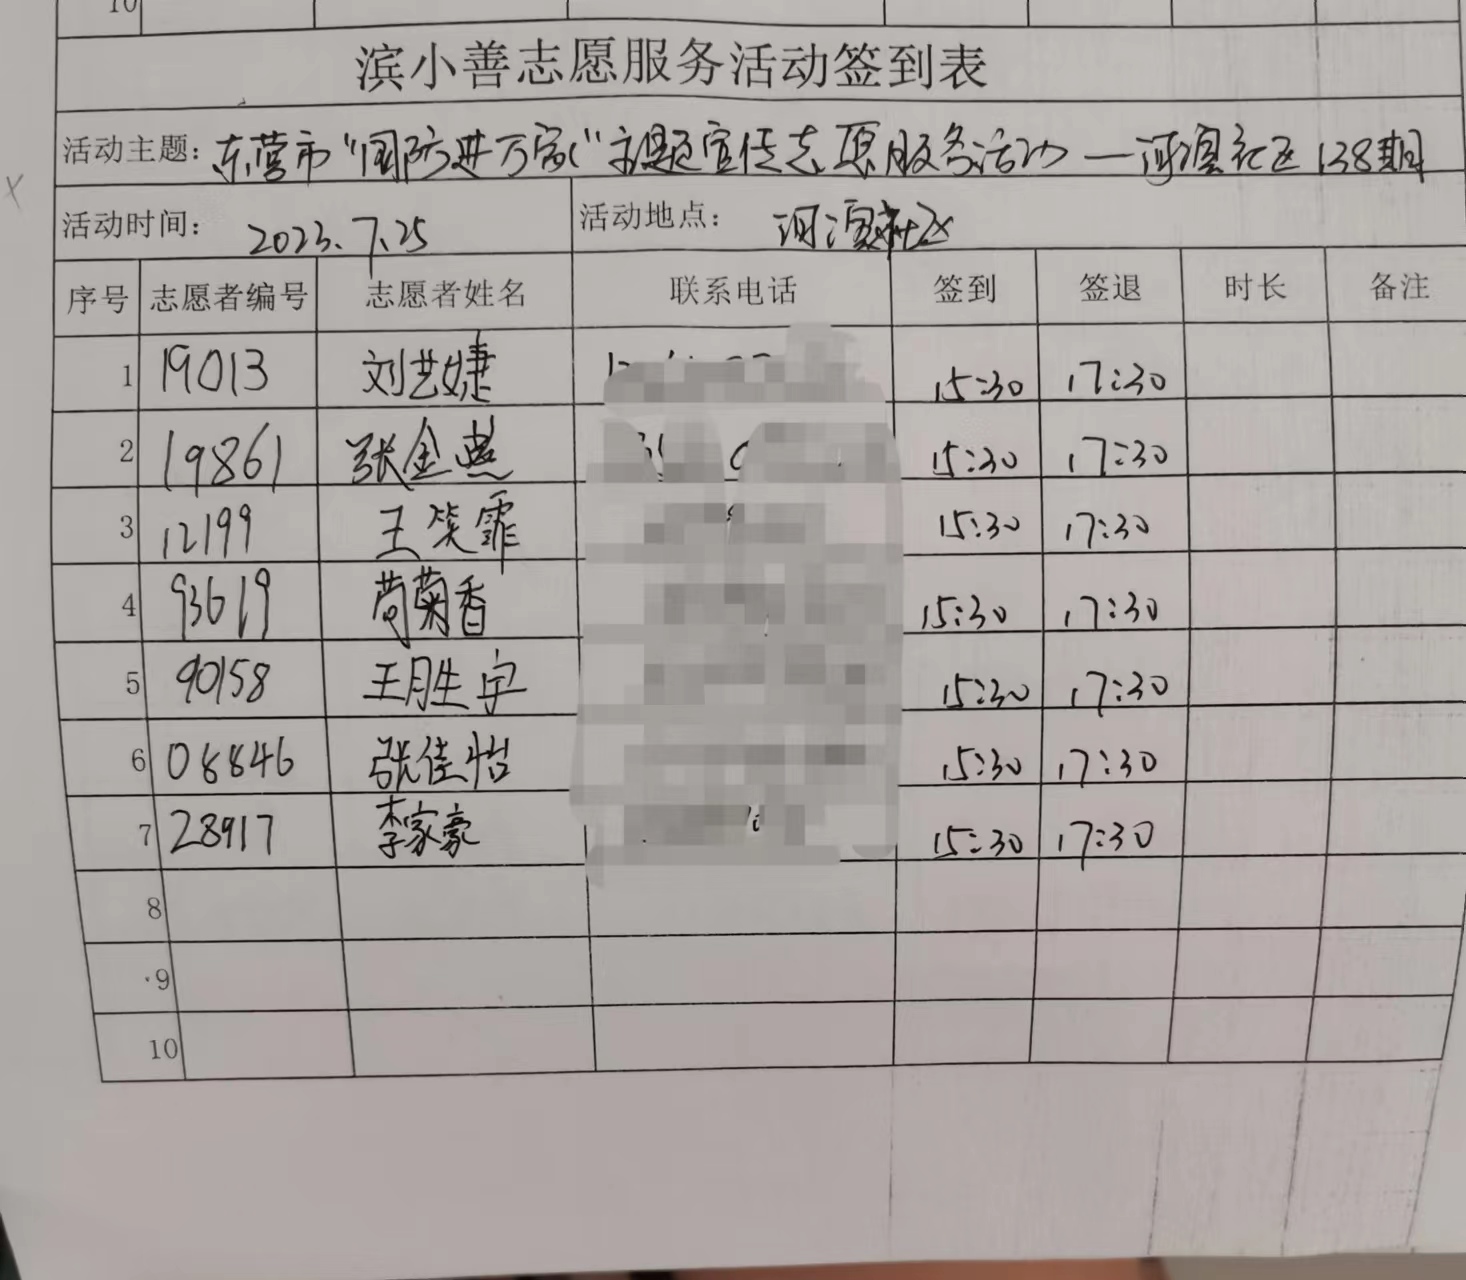 10
滨小善志愿服务活动签到表
活动主题：东营市“国防进万家”主题宣传志愿服务活动—河滨社区138期
活动时间：2023.7.25 活动地点：河滨社区
序号 志愿者编号 志愿者姓名 联系电话 签到 签退 时长 备注
1 19013 刘艺婕 15:30 17:30
2 19861 张金燕 15:30 17:30
3 12199 王笑霏 15:30 17:30
4 93619 菊香 15:30 17:30
5 90158 王胜宇 15:30 17:30
6 08846 张佳怡 15:30 17:30
7 28917 李家豪 15:30 17:30
8
9
10